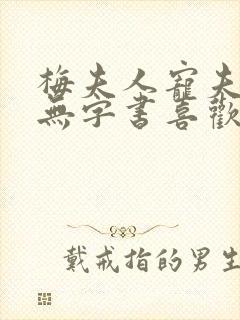 梅夫人寵夫
無字書喜歡
戴戒指的男生